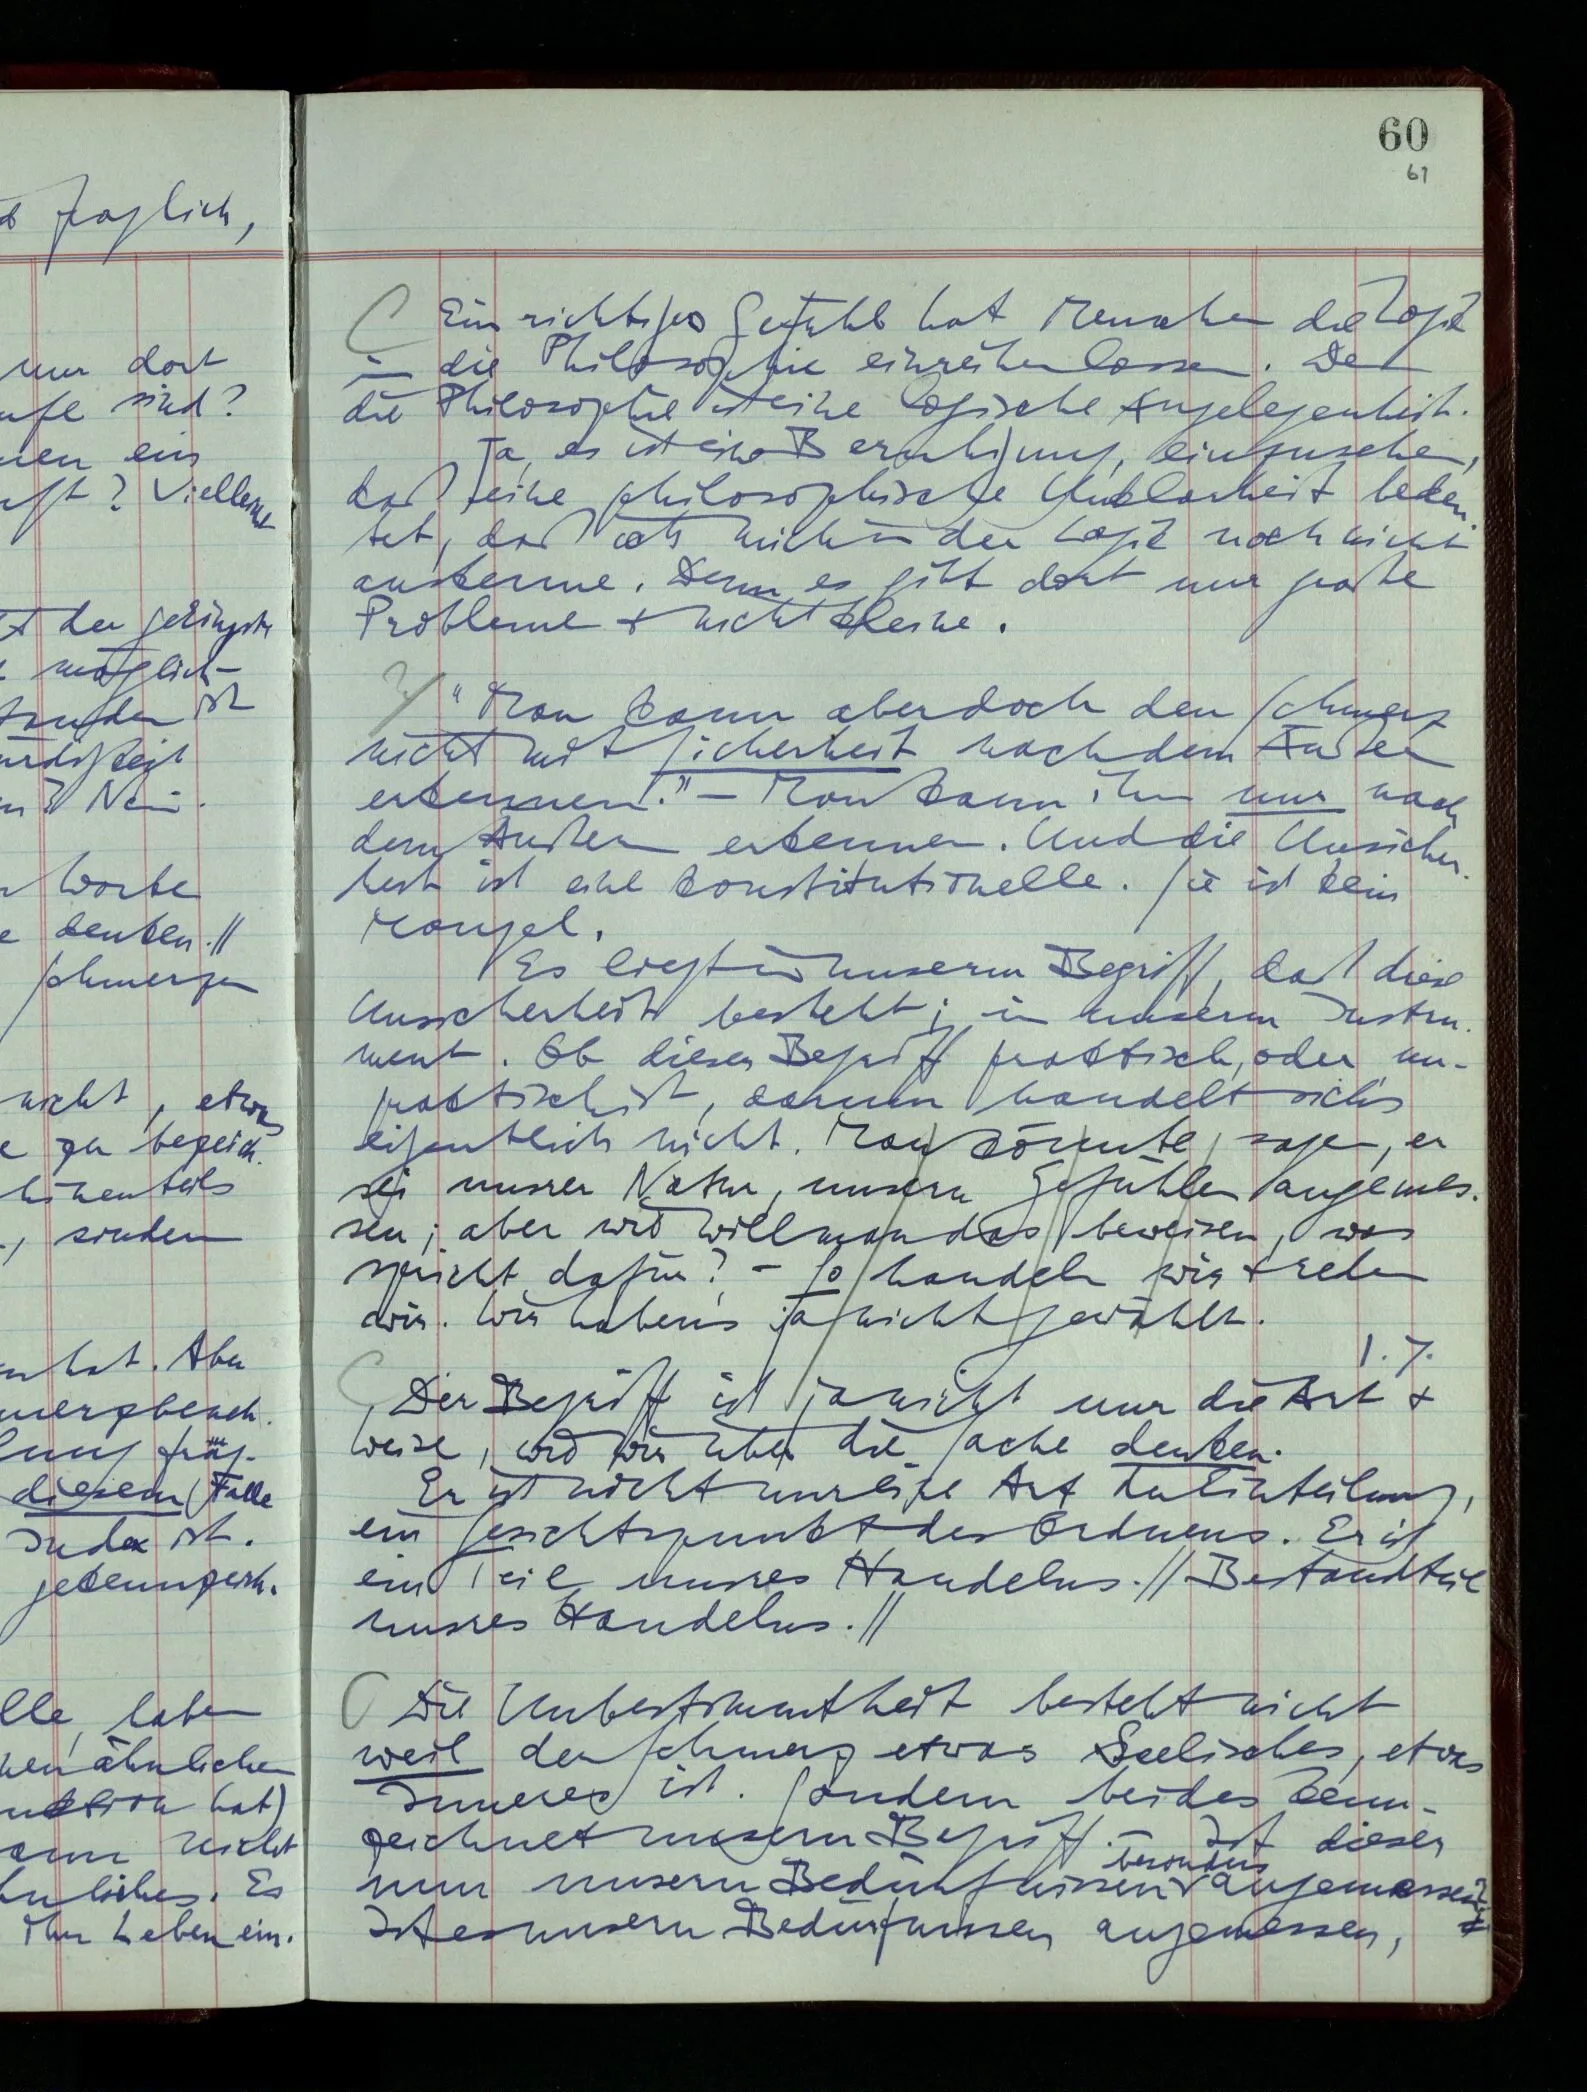 d fraglich,
nur dort
sind?
nen ein
ft? Vielleicht
der geringste
möglich-
ist
Nein.
Worte
denken.//
Schmerzen
nicht, etwas
zu bezeich-
, sondern
hat. Aber
diesem Falle
Index ist.
lle, haben
ähnlichen
hat)
nicht
Es
ihr Leben ein.
60
61
Ein richtiges Gefühl hat Menschen die Logik
in die Philosophie einreihen lassen. Denn
die Philosophie ist eine logische Angelegenheit.
Ja, es ist eine Beruhigung, einzusehen,
daß eine philosophische Unklarheit bedeu-
tet, daß ich mich in der Logik noch nicht
auskenne. Denn es gibt dort nur große
Probleme & nicht kleine.
? / "Man kann aber doch den Schmerz
nicht mit Sicherheit nach dem Äußern
erkennen." – Man kann ihn nur nach
dem Äußern erkennen. Und die Unsicher-
heit ist eine konstitutionelle. Sie ist kein
Mangel.
Es liegt in unserm Begriff, daß diese
Unsicherheit besteht; in unserm Instru-
ment. Ob dieser Begriff praktisch, oder un-
praktisch ist, darum handelt sich's
eigentlich nicht. Man könnte sagen, er
sei unsrer Natur, unsern Gefühlen angemes-
sen; aber wie will man das beweisen, was
spricht dafür? – So handeln wir & reden
wir. Wir haben's ja nicht gewählt.
1.7.
Der Begriff ist ja nicht nur die Art &
Weise, wie wir über die Sache denken.
Er ist nicht nur eine Art der Einteilung,
ein Gesichtspunkt des Ordnens. Er ist
ein Teil unsres Handelns. // Bestandteil
unsres Handelns. //
Die Unbestimmtheit besteht nicht
weil der Schmerz etwas Seelisches, etwas
Inneres ist. Sondern beides kenn-
zeichnet unsern Begriff. – Ist dieser
besonders
nun unsern Bedürfnissen angemessen?
Ist es unsern Bedürfnissen angemessen,